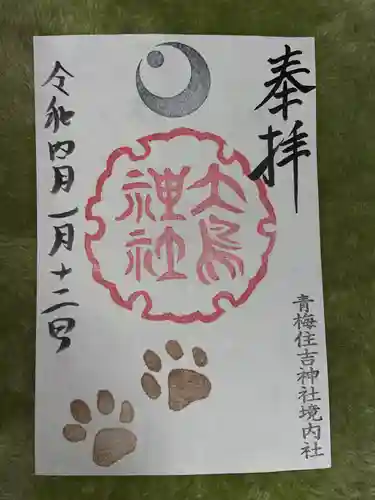 奉拝
青梅住吉神社境内社
大鳥
神社
令和四月一月十二日